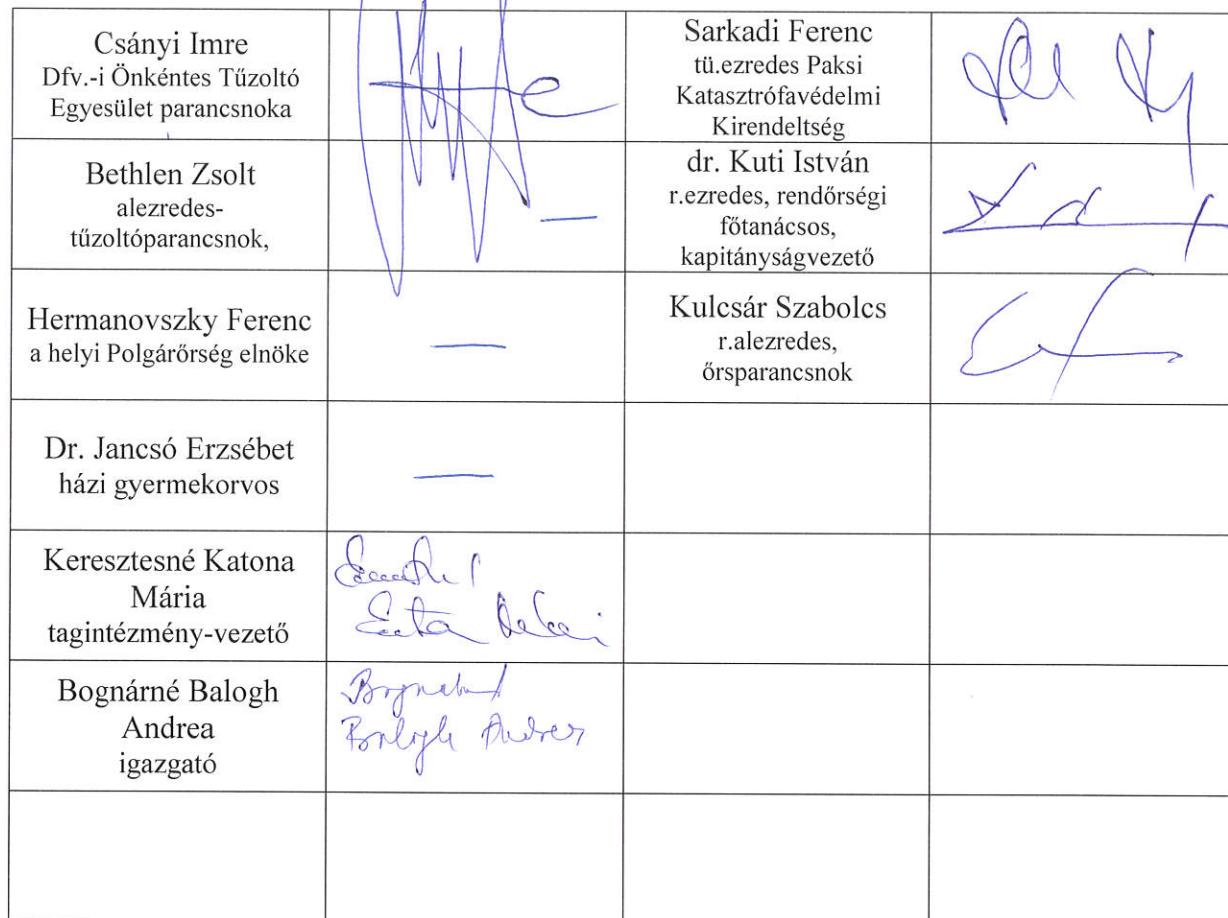 Csányi Imre
Dfv.-i Önkéntes Tűzoltó
Egyesület parancsnoka
Sarkadi Ferenc
tü.ezredes Paksi
Katasztrófavédelmi
Kirendeltség
Bethlen Zsolt
alezredes-
tűzoltóparancsnok,
dr. Kuti István
r.ezredes, rendőrségi
főtanácsos,
kapitányságvezető
Hermanovszky Ferenc
a helyi Polgárőrség elnöke
Kulcsár Szabolcs
r.alezredes,
őrsparancsnok
Dr. Jancsó Erzsébet
házi gyermekorvos
Keresztesné Katona
Mária
tagintézmény-vezető
Bognárné Balogh
Andrea
igazgató
Balogh Andrea